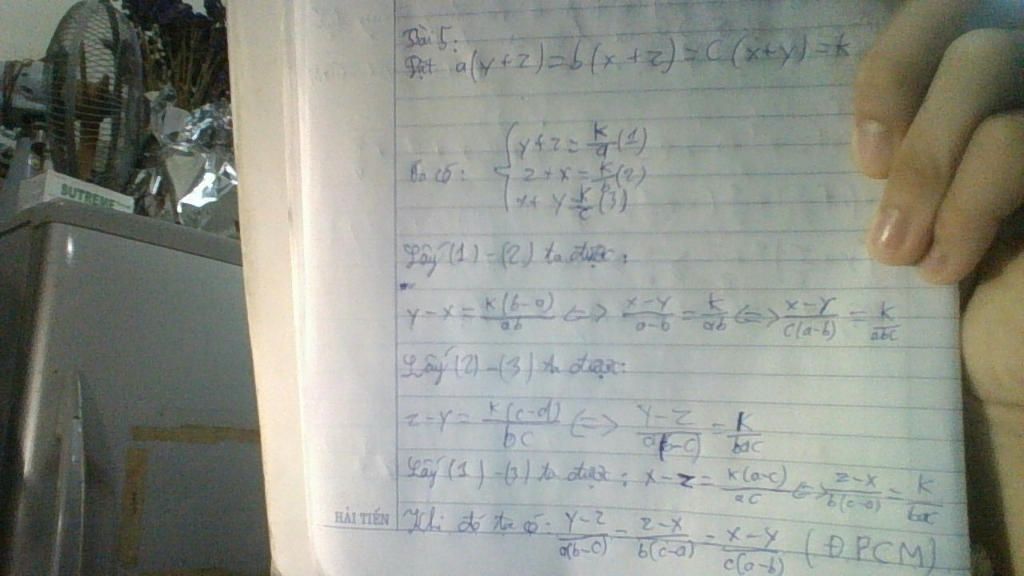 Bài 5:
Đặt a(y+z)=b(x+z)=c(x+y)=k
Ta có: { y+z = k/a (1)
z+x = k/b (2)
x+y = k/c (3)
Lấy (1)-(2) ta được:
y-x = k(b-a)/ab <=> x-y/a-b = k/ab <=> x-y/c(a-b) = k/abc
Lấy (2)-(3) ta được:
z-y = k(c-d)/bc <=> y-z/a(b-c) = k/bac
Lấy (1)-(3) ta được: x-z = k(a-c)/ac <=> z-x/b(c-a) = k/bac
Khi đó ta có: y-z/a(b-c) = z-x/b(c-a) = x-y/c(a-b) (ĐPCM)
HẢI TIẾN
SUTREME